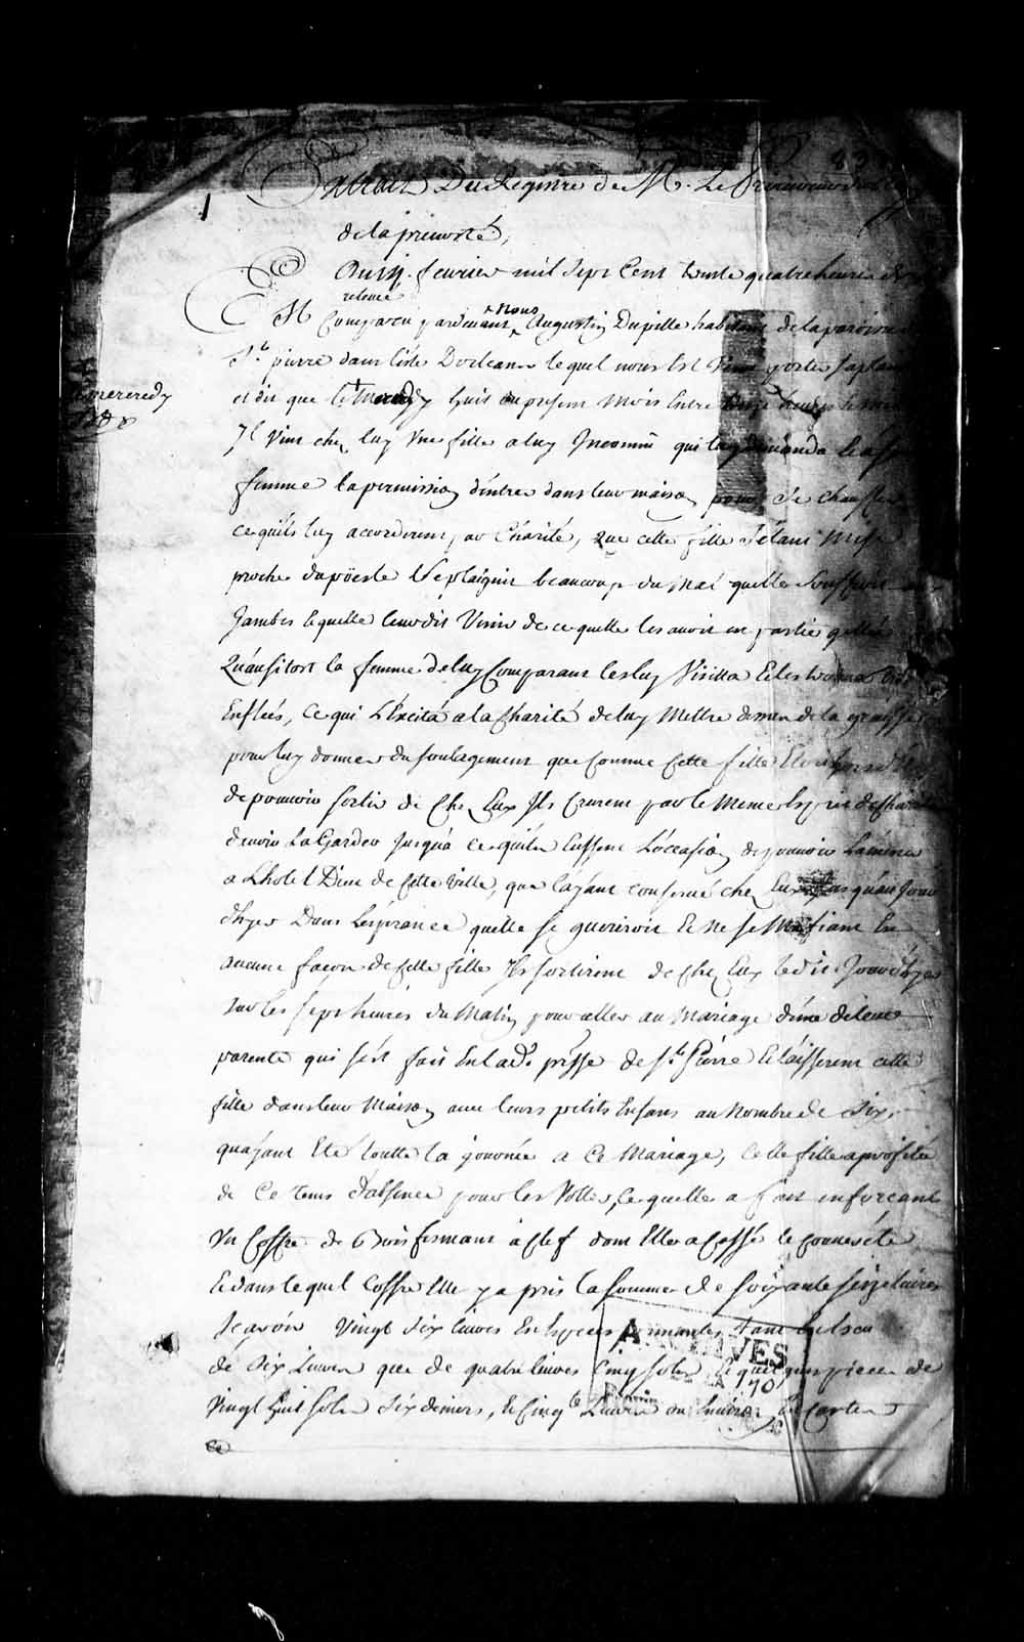 Extrait Du Registre de M. Le
de la prevosté,
Du 11 fevrier mil sept Cent trente quatre heures de
relevée
Est Comparu pardevant Nous Augustin Dupille habitant de la paroisse
St pierre dans L'isle Dorleans lequel nous Est Venu porter sa plainte
mercredy
et dit que le mercredy huit du present mois Entre heures
Il Vint chez luy Une fille a luy Inconnüe qui luy demanda Et a sa
femme la permission d'entrer dans leur maison pour se chauffer
ce quils luy accorderent par Charité, Que cette fille s'Etant Mise
proche du poësle Se plaignit beaucoup du Mal quelle Souffroit aux
Jambes lequelle leur dit Venir de ce quelle les avoit en partie gellée
Qu'ausitost la femme de luy Comparant les luy Visitta Et les trouva
Enflées, Ce qui L'Excita a la Charité de luy Mettre dessus de la graisse
pour luy donner du soulagement que Comme Cette fille Etoit hors d'Etat
de pouvoir sortir de Chez Eux Ils Crurent par le Meme Esprit de Charité
devoir La Garder Jusqu'a ce quils Eussent L'occasion de pouvoir L'amener
a L'hotel Dieu de Cette Ville, que l'ayant conservé chez Eux Jusqu'au Jour
d'hyer Dans L'esperance quelle se gueriroit Et Ne se Mefiant En
aucune façon de Cette fille Ils sortirent de Chez Eux le dit Jour d'hyer
sur les sept heures du Matin pour aller au Mariage d'une de leur
parente qui s'est fait En lad. psse de St Pierre Et laisserent cette
fille dans leur Maison avec leurs petits Enfans au Nombre de Six,
quayant Eté toutte la journée a Ce Mariage, Cette fille a profité
de Ce tems d'absence pour les Voller, Ce quelle a fait en forçant
Un Coffre de Bois fermant à Clef dont Elle a Cassé le Couvercle
Et dans lequel Coffre Elle y a pris la somme de soixante seize livres
sçavoir Vingt six livres En Especes sonnantes tant En Ecu
de Six Livres que de quatre livres Cinq sols Et quelques pieces de
Vingt huit sols six deniers, Et Cinq Livres ou Environ en Cartes
ARCHIVES